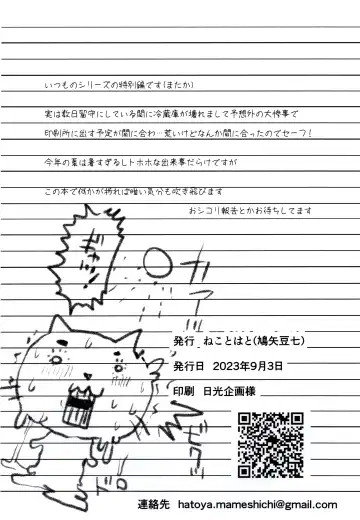 いつものシリーズの特別編です(またか)
実は数日留守にしている間に冷蔵庫が壊れまして予想外の大惨事で
印刷所に出す予定が間に合わ…荒いけどなんか間に合ったのでセーフ!
今年の夏は暑すぎるしトホホな出来事だらけですが
この本で何かが捗れば暗い気分も吹き飛びます
おシコリ報告とかお待ちしてます
発行 ねことはと(鳩矢豆七)
発行日 2023年9月3日
印刷 日光企画様
連絡先 hatoya.mameshichi@gmail.com